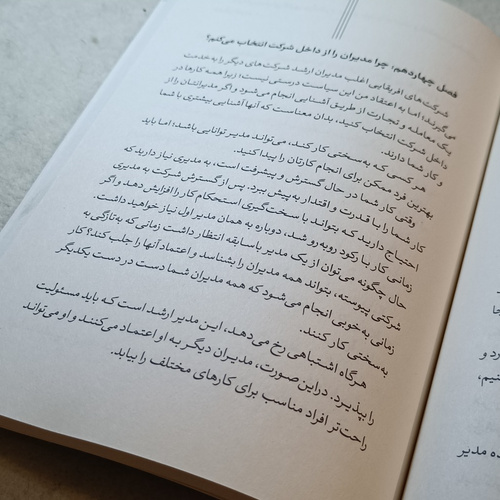 فصل چهاردهم: چرا مدیران را از داخل شرکت انتخاب می‌کنم؟
شرکت‌های افریقایی اغلب مدیران ارشد شرکت‌های دیگر را به خدمت
می‌گیرند؛ اما به اعتقاد من این سیاست درستی نیست؛ زیرا همه کارها در
یک معامله و تجارت از طریق آشنایی انجام می‌شود و اگر مدیرانشان را از
داخل شرکت انتخاب کنید، بدان معناست که آنها آشنایی بیشتری با شما
و کار شما دارند.
هر کسی که به‌سختی کار کند، می‌تواند مدیر توانایی باشد؛ اما باید
بهترین فرد ممکن برای انجام کارتان را پیدا کنید.
وقتی کار شما در حال گسترش و پیشرفت است، به مدیری نیاز دارید که
کار شما را با قدرت و اقتدار به پیش ببرد. پس از گسترش شرکت به مدیری
احتیاج دارید که بتواند با سخت‌گیری استحکام کار را افزایش دهد و اگر
زمانی کار با رکود روبه‌رو شد، دوباره به همان مدیر اول نیاز خواهید داشت.
حال چگونه می‌توان از یک مدیر باسابقه انتظار داشت زمانی که به‌تازگی به
شرکتی پیوسته، بتواند همه مدیران را بشناسد و اعتماد آنها را جلب کند؟ کار
زمانی به‌خوبی انجام می‌شود که همه مدیران شما دست در دست یکدیگر
به‌سختی کار کنند.
هرگاه اشتباهی رخ می‌دهد، این مدیر ارشد است که باید مسئولیت
را بپذیرد. دراین‌صورت، مدیران دیگر به او اعتماد می‌کنند و او می‌تواند
راحت‌تر افراد مناسب برای کارهای مختلف را بیابد.
رد و
نیم،
ده مدیر